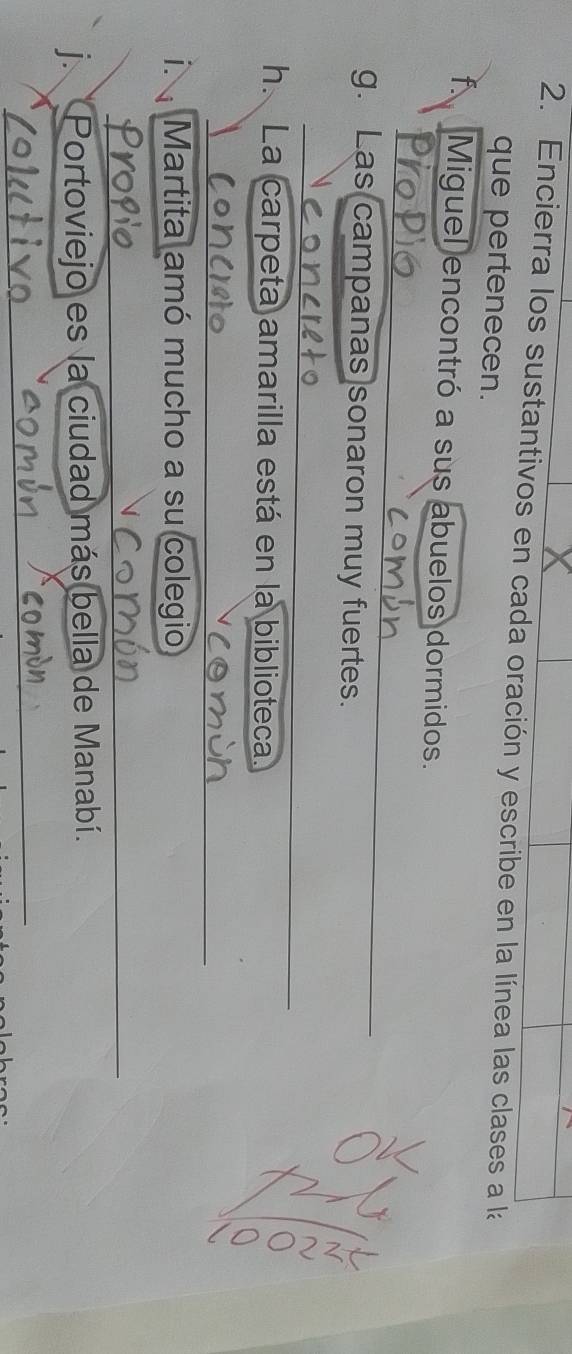 2. Encierra los sustantivos en cada oración y escribe en la línea las clases a
que pertenecen.
f. Miguel encontró a sus abuelos dormidos.
Propio común
g. Las campanas sonaron muy fuertes.
concreto
h. La carpeta amarilla está en la biblioteca.
concreto común
i. Martita amó mucho a su colegio
Propio común
j. Portoviejo es la ciudad más bella de Manabí.
colectivo común común
OK